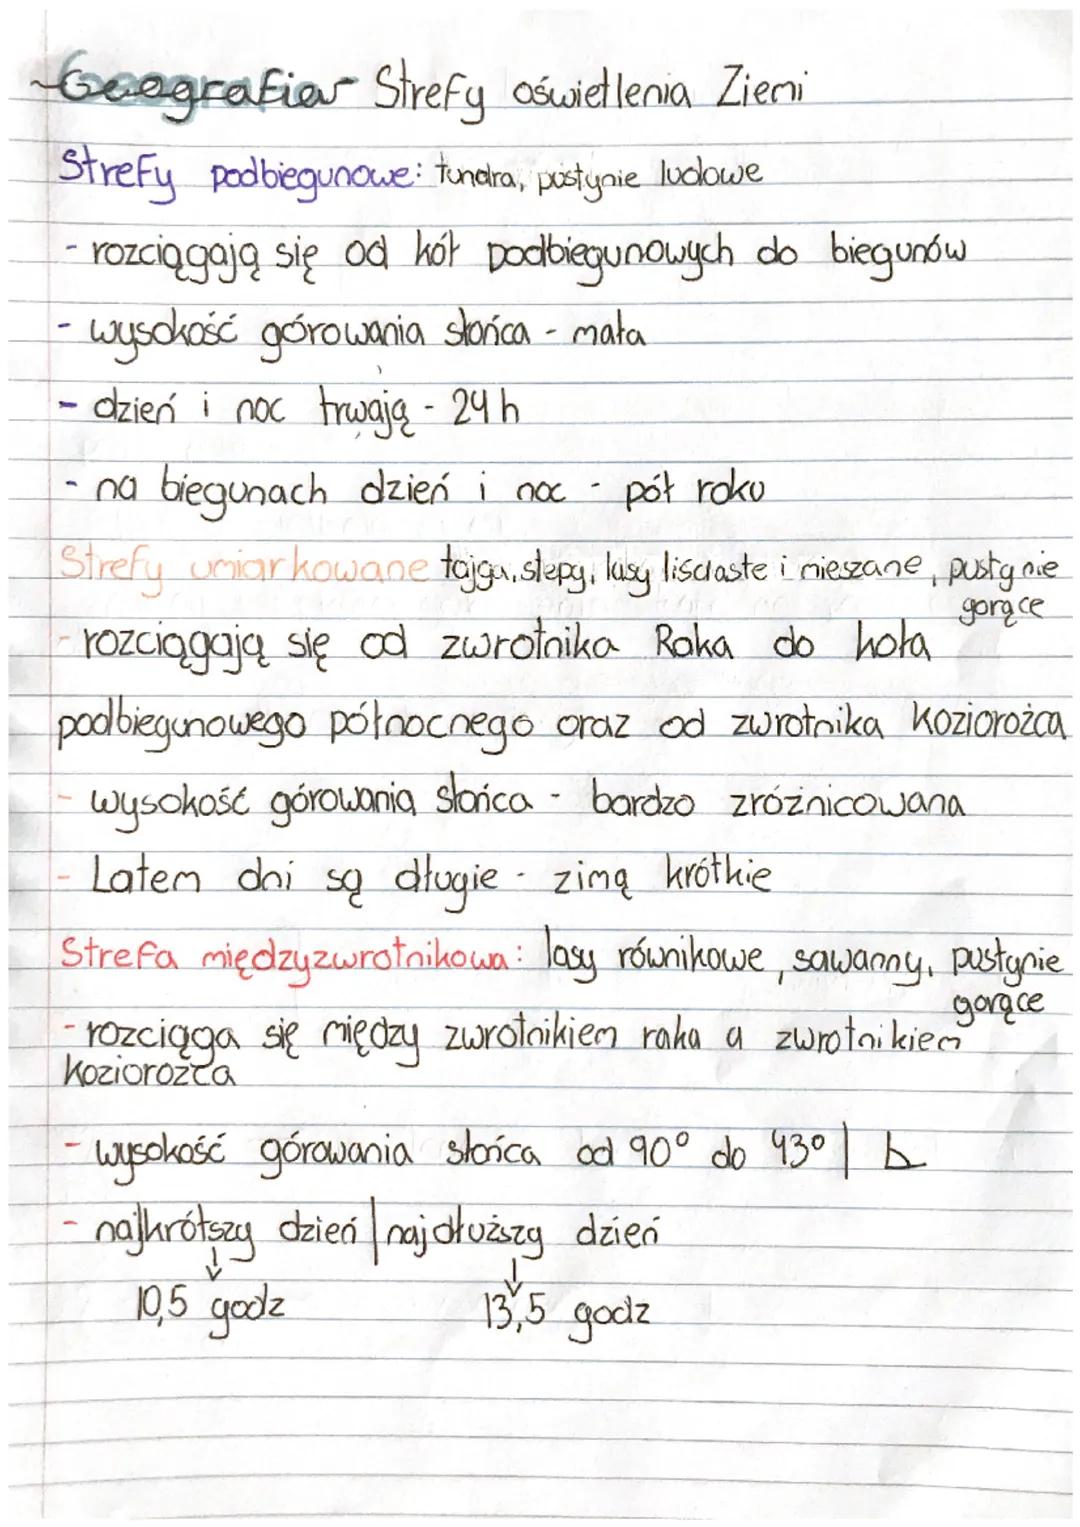 ~Geografia- Strefy oświetlenia Ziemi
Strefy podbiegunowe: tundra, pustynie lodowe
- rozciągają się od kół podbiegunowych do biegunów
- wysokość górowania słońca - mała
- dzień i noc trwają - 24 h
- na biegunach dzień i noc - pół roku
Strefy umiarkowane tajga, stepy, lasy liściaste i mieszane, pustynie
gorące
- rozciągają się od zwrotnika Raka do koła
podbiegunowego północnego oraz od zwrotnika Koziorożca
- wysokość górowania słońca - bardzo zróżnicowana
- Latem dni są długie - zimą krótkie
Strefa międzyzwrotnikowa: lasy równikowe, sawanny, pustynie
gorące
- rozciąga się między zwrotnikiem raka a zwrotnikiem
Koziorożca
- wysokość górowania słońca od 90° do 43° |
- najkrótszy dzień | najdłuższy dzień
10,5 godz 13,5 godz